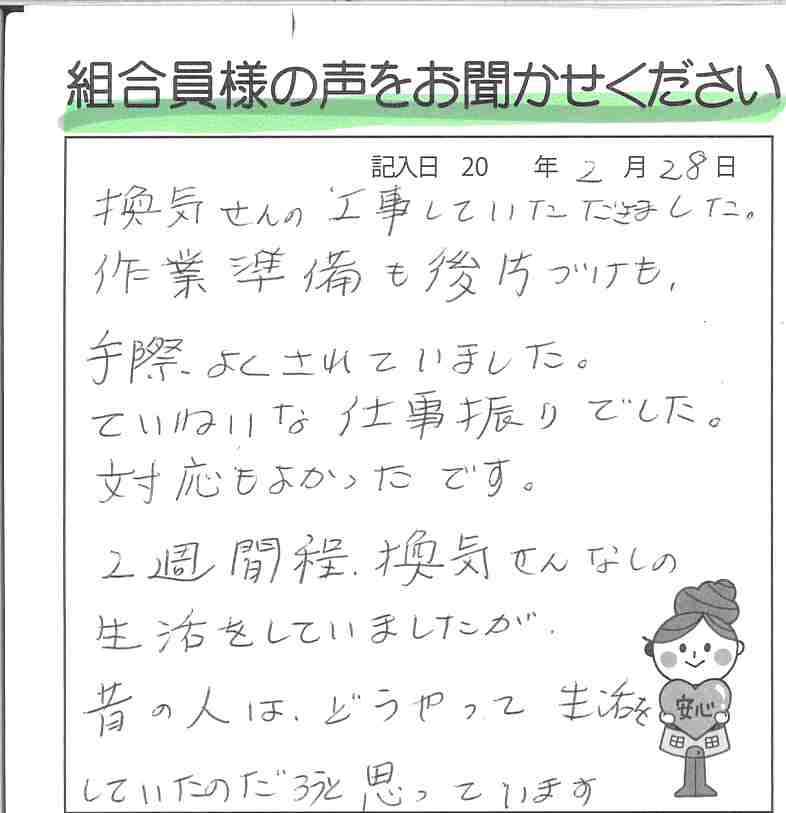 組合員様の声をお聞かせください
記入日 20 年 2 月 28 日
換気せんの工事していただきました。
作業準備も後片づけも、
手際よくされていました。
ていねいな仕事振りでした。
対応もよかったです。
2週間程、換気せんなしの
生活をしていましたが、
昔の人は、どうやって生活を
していたのだろうと思っています
安心